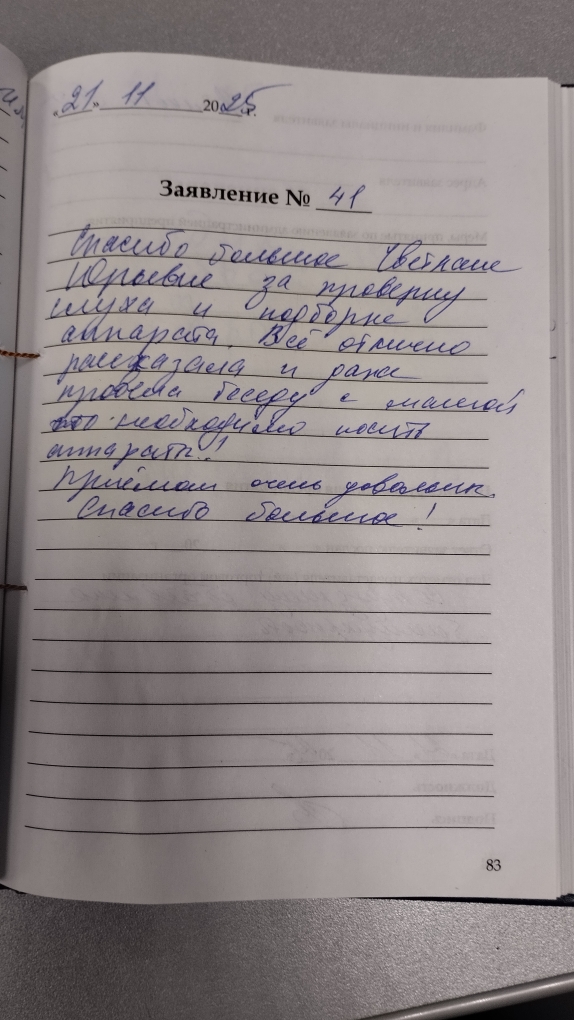 „21" 11 2025 г.
Заявление № 41
Спасибо большое Светлане
Юрьевне за проверку
слуха и подборке
аппарата. Всё отлично
рассказала и даже
провела беседу с мамой
что необходимо носить
аппараты!
Приёмом очень довольны.
Спасибо большое!
83